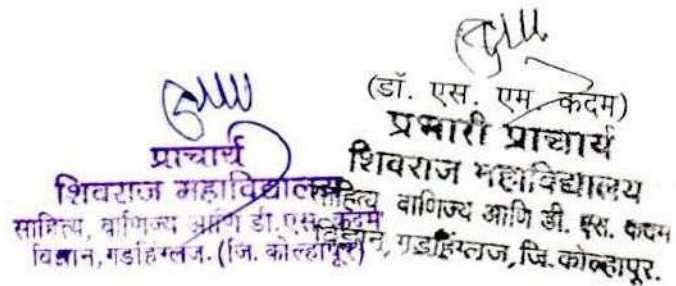 प्राचार्य
शिवराज महाविद्यालय
साहित्य, वाणिज्य आणि डी. एस. कदम
विज्ञान, गडहिंग्लज. (जि. कोल्हापूर)
(डॉ. एस. एम. कदम)
प्रभारी प्राचार्य
शिवराज महाविद्यालय
साहित्य वाणिज्य आणि डी. एस. कदम
विज्ञान, गडहिंग्लज, जि. कोल्हापूर.